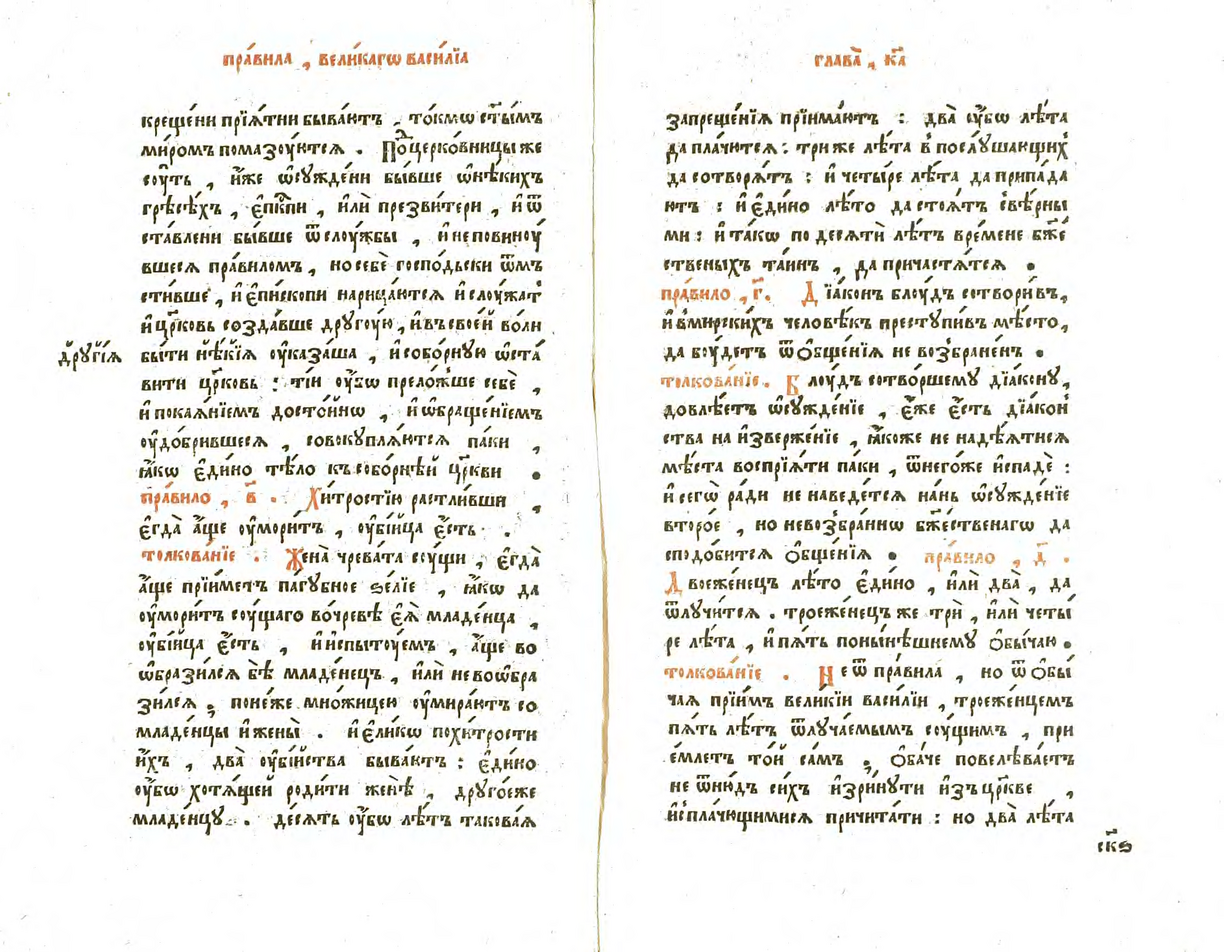 пра́вила , вели́кагѡ васи́лїа
креще́ни прїѧ́тни быва́ютъ , то́кмѡ ст҃ы́мъ
ми́ромъ помазꙋ́ютсѧ . По́црⷪ҇ерковницы же
сꙋ́ть , и҆́же ѡ҆сꙋжде́ни бы́вше ѡ҆нѣ́кихъ
грѣсѣ́хъ , є҆пⷭ҇кпи , и҆лѝ презви́тери , и҆ ѿ
ста́влени бы́вше ѿ слꙋ́жбы , и҆ не повинꙋ́
вшесѧ пра́виломъ , но себѐ госпо́дьски ѿмъ
сти́вше , и҆ є҆пи́скопи нарица́ютсѧ и҆ слꙋ́жат
и҆ цр҃ковь созда́вше дрꙋгꙋ́ю , и҆ въ свое́й во́ли
бы́ти нѣ́кїѧ ᲂу҆каза́ша , и҆ собо́рную ѡ҆ста́
дрꙋгі́ѧ
вити цр҃ковь : ті́и ᲂу҆́бѡ прело́жше себѐ ,
и҆ покаѧ́нїемъ досто́йнѡ , и҆ ѡ҆браще́нїемъ
ᲂу҆до́брившесѧ , совокꙋплѧ́ютсѧ па́ки ,
ꙗ҆́кѡ є҆ди́но тѣ́ло къ собо́рнѣй цр҃кви .
пра́вило , в҃ . Хи́тростїю растли́вши ,
є҆гда̀ а҆́ще ᲂу҆мори́тъ , ᲂу҆бі́йца є҆́сть .
толкова́нїе . Жена̀ чрева́та сꙋ́щи , є҆гда̀
а҆́ще прїи́метъ па́гꙋбное ѕе́лїе , ꙗ҆́кѡ да
ᲂу҆мори́тъ сꙋ́щаго во чре́вѣ є҆ѧ̀ младе́нца ,
ᲂу҆бі́йца є҆́сть , и҆ и҆спытꙋ́емъ , а҆́ще во
ѡ҆брази́лсѧ бѣ̀ младе́нецъ , и҆лѝ не воѡ҆бра
зи́лсѧ ; поне́же мно́жицею ᲂу҆мира́ютъ со
младе́нцы и҆ жены̀ . и҆ є҆ли́кѡ по хи́трости
и҆́хъ , два̀ ᲂу҆бі́йства быва́ютъ : є҆ди́но
ᲂу҆́бѡ хотѧ́щей роди́ти женѣ̀ , дрꙋго́е же
младе́нцꙋ . де́сѧть ᲂу҆́бѡ лѣ́тъ такова́ѧ
глава̀ , к҃а
запреще́нїѧ прїима́ютъ : два̀ ᲂу҆́бѡ лѣ́та
да пла́чютсѧ : три́ же лѣ́та в послꙋ́шающих
да сотворѧ́тъ : и҆ четы́ре лѣ́та да припа́да
ютъ : и҆ є҆ди́но лѣ́то да стоѧ́тъ с вѣ́рны
ми : и҆ та́кѡ по десѧтѝ лѣ́тъ вре́мене бж҃е́
ственыхъ та́инъ , да причастѧ́тсѧ .
пра́вило , г҃ . Дїа́конъ блꙋ́дъ сотвори́въ ,
и҆ в мирски́хъ человѣ́къ престꙋпи́въ мѣ́сто ,
да бꙋ́детъ ѿ о҆бще́нїѧ не возбране́нъ .
толкова́нїе . Блꙋ́дъ сотво́ршемꙋ дїа́конꙋ ,
довлѣ́етъ ѡ҆сꙋжде́нїе , є҆́же є҆́сть дїа́кон
ства на и҆зверже́нїе , ꙗ҆́коже не надѣ́ѧтисѧ
мѣ́ста воспрїѧ́ти па́ки , ѿ него́же и҆спадѐ :
и҆ сегѡ̀ ра́ди не наведе́тсѧ на́нь ѡ҆сꙋжде́нїе
второ́е , но невозбра́ннѡ бж҃е́ственагѡ да
сподо́битсѧ о҆бще́нїѧ . пра́вило , д҃ .
Двоеже́нецъ лѣ́то є҆ди́но , и҆лѝ два̀ , да
ѿлꙋчи́тсѧ . троеже́нецъ же трѝ , и҆лѝ четы́
ре лѣ́та , и҆ пѧ́ть по ны́нѣшнемꙋ о҆бы́чаю .
толкова́нїе . Не ѿ пра́вила , но ѿ о҆бы́
чаѧ прїи́мъ вели́кїи васи́лїи , троеже́нцемъ
пѧ́ть лѣ́тъ ѿлꙋча́емымъ сꙋ́щимъ , при
е́млетъ то́й са́мъ ; о҆ба́че повелѣва́етъ
не ѿню́дъ си́хъ и҆зри́нꙋти и҆зъ цр҃кве ,
и҆ с пла́чющимисѧ причита́ти : но два̀ лѣ́та
ск҃ѕ